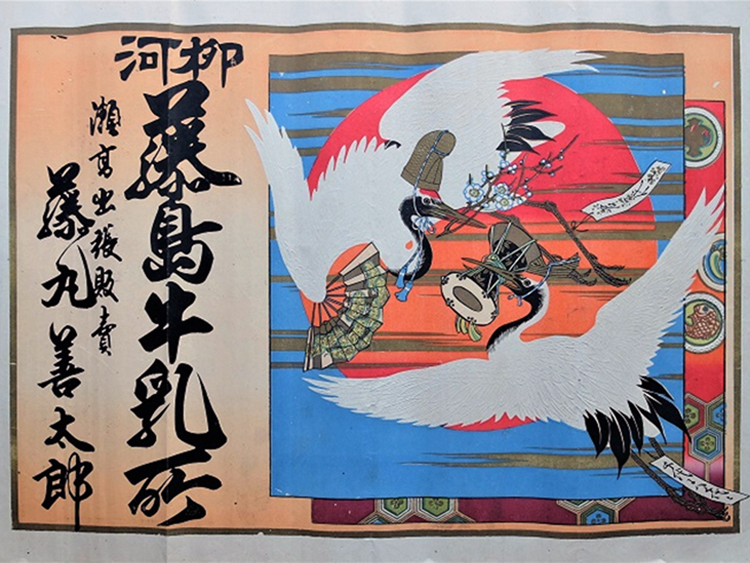 柳河
藤島牛乳所
瀬高出張販売
藤丸善太郎